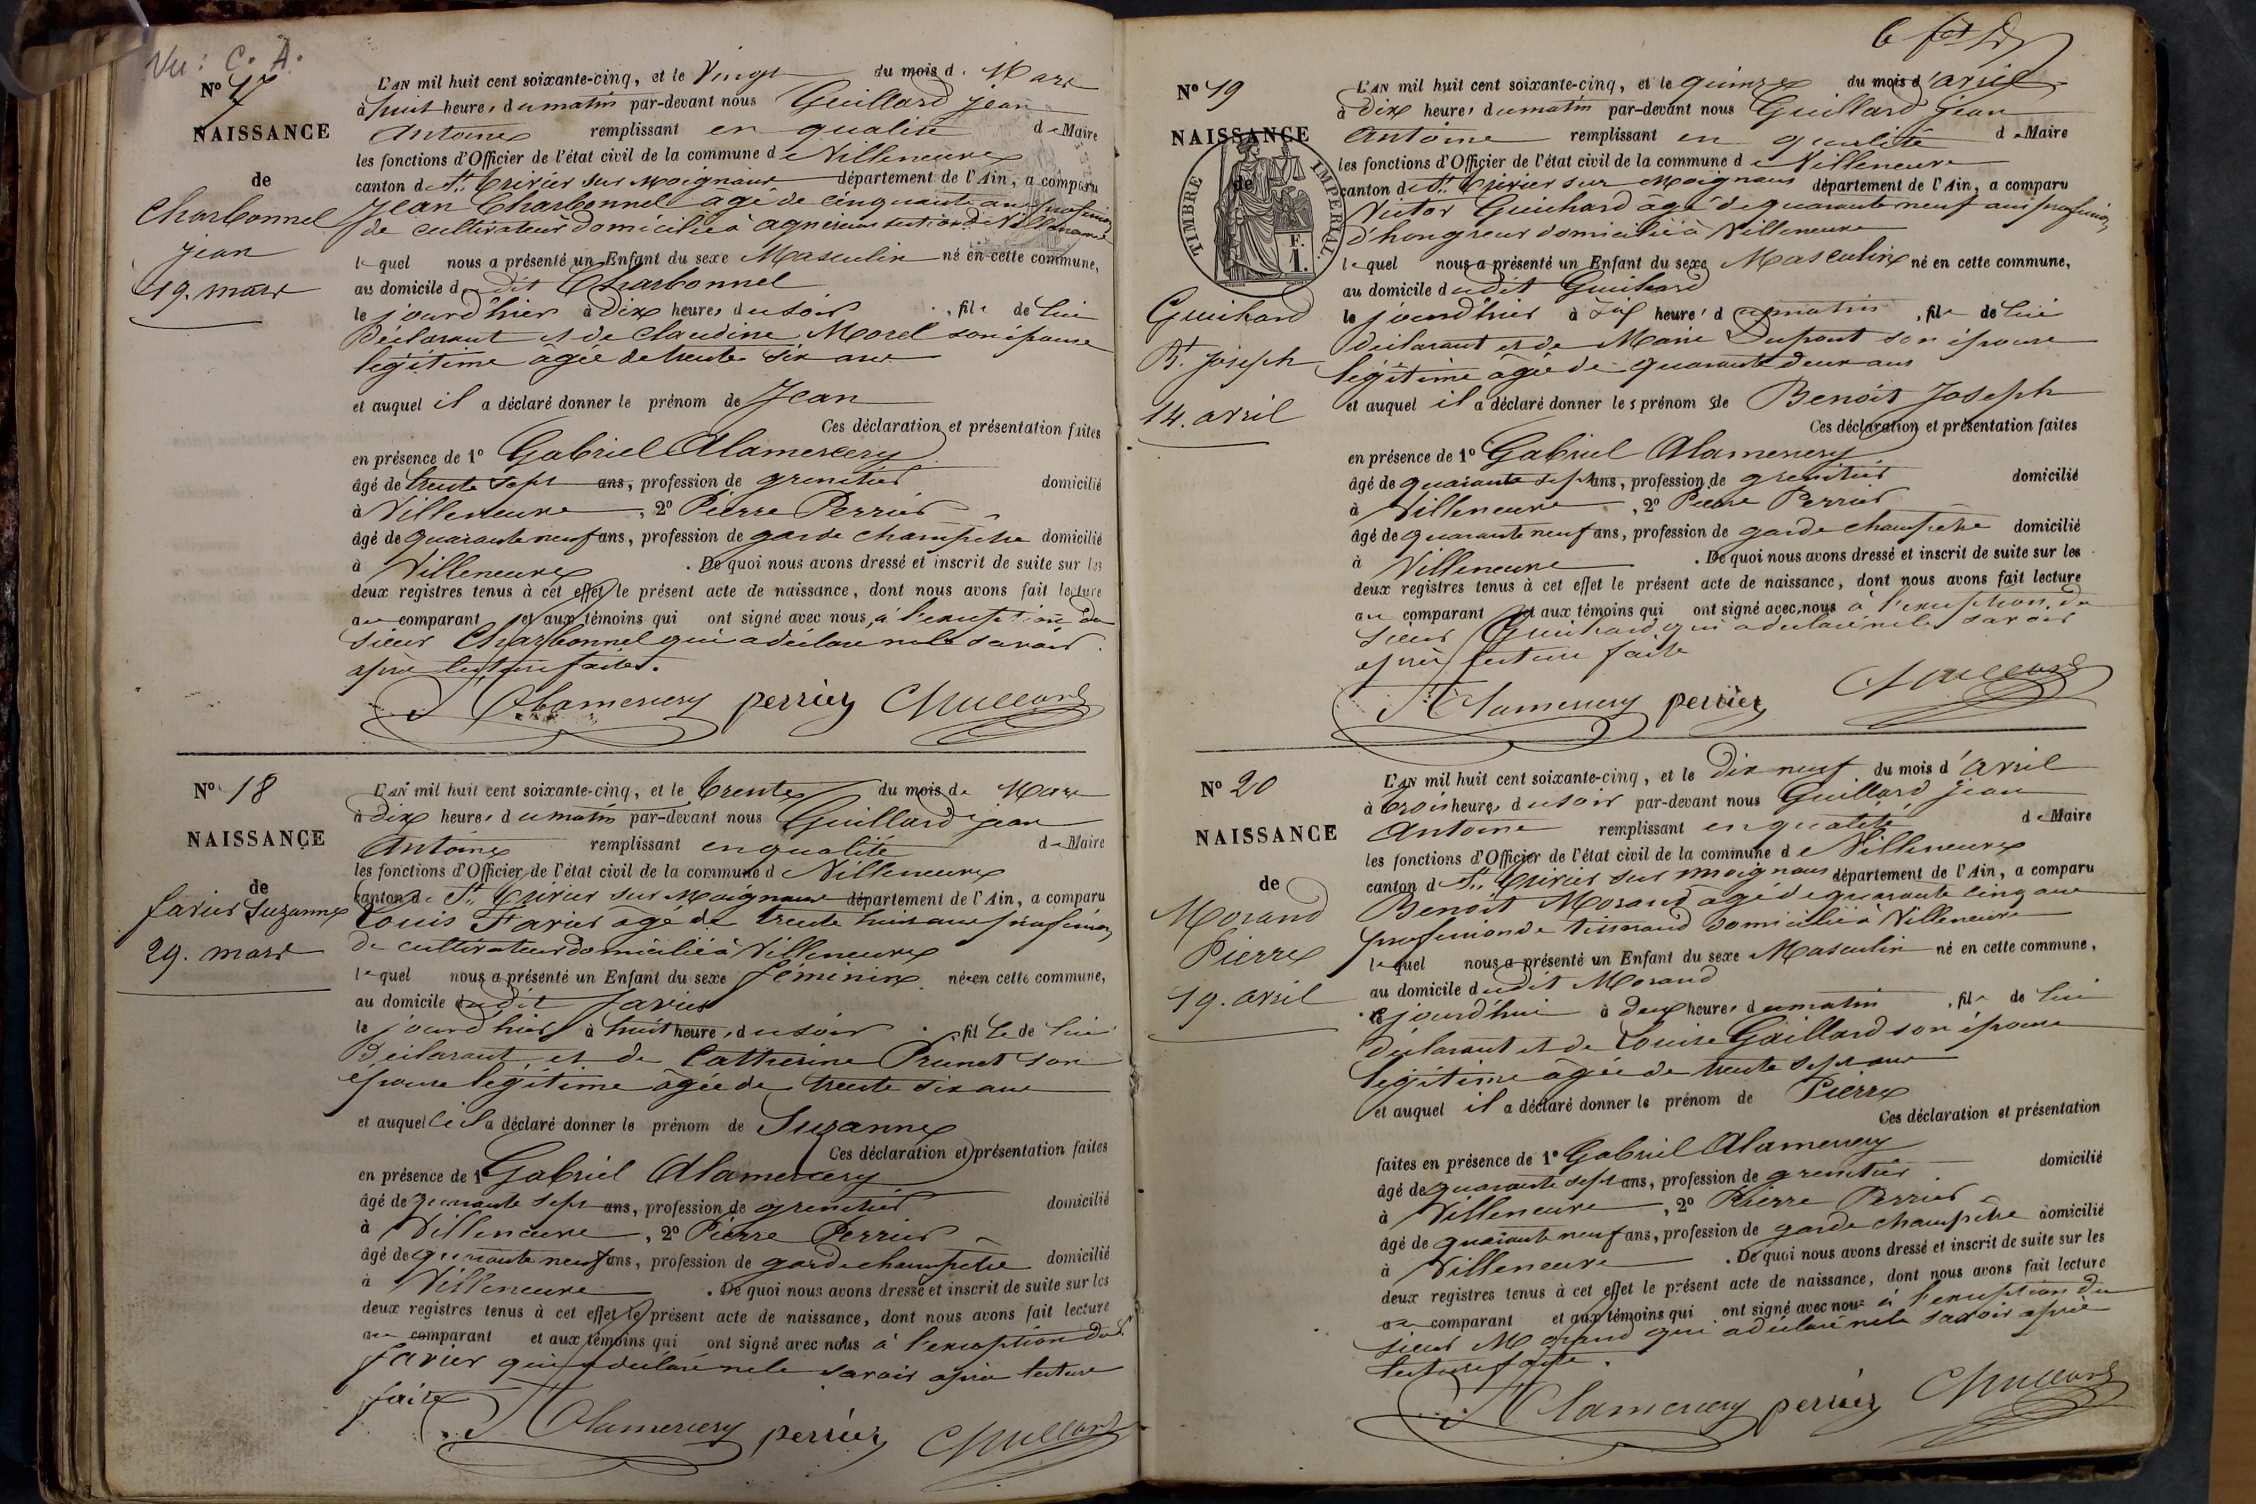 Vu : C. A.
N° 17
NAISSANCE
de
Charbonnel
jean
19. mars
L'AN mil huit cent soixante-cinq, et le Vingt du mois de Mars
à huit heures du matin par-devant nous Guillard jean
Antoine remplissant en qualité de Maire
les fonctions d'Officier de l'état civil de la commune de Villeneuve
canton de St. Trivier sur Moignans département de l'Ain, a comparu
Jean Charbonnel âgé de cinquante ans profession
de cultivateur domicilié à agnereins section de Villeneuve
lequel nous a présenté un Enfant du sexe Masculin né en cette commune,
au domicile dudit Charbonnel
le jourd'hier à Dix heures du soir, fils de lui
Déclarant et de Claudine Morel son épouse
légitime âgée de trente six ans
et auquel il a déclaré donner le prénom de Jean
Ces déclaration et présentation faites
en présence de 1° Gabriel Alamercery
âgé de trente sept ans, profession de grenetier domicilié
à Villeneuve, 2° Pierre Perrier
âgé de quarante neuf ans, profession de garde champêtre domicilié
à Villeneuve. De quoi nous avons dressé et inscrit de suite sur les
deux registres tenus à cet effet le présent acte de naissance, dont nous avons fait lecture
au comparant et aux témoins qui ont signé avec nous à l'exception du
sieur Charbonnel qui a déclaré ne le savoir
après lecture faite.
Alamercery perrier Guillard
N° 18
NAISSANCE
de
favier Suzanne
29. mars
L'AN mil huit cent soixante-cinq, et le trente du mois de Mars
à dix heures du matin par-devant nous Guillard jean
Antoine remplissant en qualité de Maire
les fonctions d'Officier de l'état civil de la commune de Villeneuve
canton de St. Trivier sur Moignans département de l'Ain, a comparu
Louis Favier âgé de trente huit ans profession
de cultivateur domicilié à Villeneuve
lequel nous a présenté un Enfant du sexe féminin née en cette commune,
au domicile dudit favier
le jourd'hier à huit heures du soir, fille de lui
Déclarant et de Catherine Prunet son
épouse légitime âgée de trente six ans
et auquelle il a déclaré donner le prénom de Suzanne
Ces déclaration et présentation faites
en présence de 1° Gabriel Alamercery
âgé de quarante sept ans, profession de grenetier domicilié
à Villeneuve, 2° Pierre Perrier
âgé de quarante neuf ans, profession de garde champêtre domicilié
à Villeneuve. De quoi nous avons dressé et inscrit de suite sur les
deux registres tenus à cet effet le présent acte de naissance, dont nous avons fait lecture
au comparant et aux témoins qui ont signé avec nous à l'exception du S.
favier qui a déclaré ne le savoir après lecture
faite
Alamercery perrier Guillard
6
N° 19
NAISSANCE
de
TIMBRE IMPÉRIAL
F.
1.
Guichard
Bt. joseph
14. avril
L'AN mil huit cent soixante-cinq, et le quinze du mois d'avril
à dix heures du matin par-devant nous Guillard Jean
Antoine remplissant en qualité de Maire
les fonctions d'Officier de l'état civil de la commune de Villeneuve
canton de St. Trivier sur Moignans département de l'Ain, a comparu
Victor Guichard âgé de quarante neuf ans profession
d'hongreur domicilié à Villeneuve
lequel nous a présenté un Enfant du sexe Masculin né en cette commune,
au domicile dudit Guichard
le jourd'hier à six heures du matin, fils de lui
déclarant et de Marie Dupont son épouse
légitime âgée de quarante deux ans
et auquel il a déclaré donner les prénoms de Benoit Joseph
Ces déclaration et présentation faites
en présence de 1° Gabriel Alamercery
âgé de quarante sept ans, profession de grenetier domicilié
à Villeneuve, 2° Pierre Perrier
âgé de quarante neuf ans, profession de garde champêtre domicilié
à Villeneuve. De quoi nous avons dressé et inscrit de suite sur les
deux registres tenus à cet effet le présent acte de naissance, dont nous avons fait lecture
au comparant et aux témoins qui ont signé avec nous à l'exception du
sieur Guichard qui a déclaré ne le savoir
après lecture faite
Alamercery perrier Guillard
N° 20
NAISSANCE
de
Morand
Pierre
19. avril
L'AN mil huit cent soixante-cinq, et le dix neuf du mois d'avril
à trois heures du soir par-devant nous Guillard Jean
Antoine remplissant en qualité de Maire
les fonctions d'Officier de l'état civil de la commune de Villeneuve
canton de St. Trivier sur moignans département de l'Ain, a comparu
Benoit Morand âgé de quarante cinq ans
profession de tisserand domicilié à Villeneuve
lequel nous a présenté un Enfant du sexe Masculin né en cette commune,
au domicile dudit Morand
le jourd'hui à deux heures du matin, fils de lui
déclarant et de Louise Gaillard son épouse
légitime âgée de trente sept ans
et auquel il a déclaré donner le prénom de Pierre
Ces déclaration et présentation
faites en présence de 1° Gabriel Alamercery
âgé de quarante sept ans, profession de grenetier domicilié
à Villeneuve, 2° Pierre Perrier
âgé de quarante neuf ans, profession de garde champêtre domicilié
à Villeneuve. De quoi nous avons dressé et inscrit de suite sur les
deux registres tenus à cet effet le présent acte de naissance, dont nous avons fait lecture
au comparant et aux témoins qui ont signé avec nous à l'exception du
sieur Morand qui a déclaré ne le savoir après
lecture faite.
Alamercery perrier Guillard